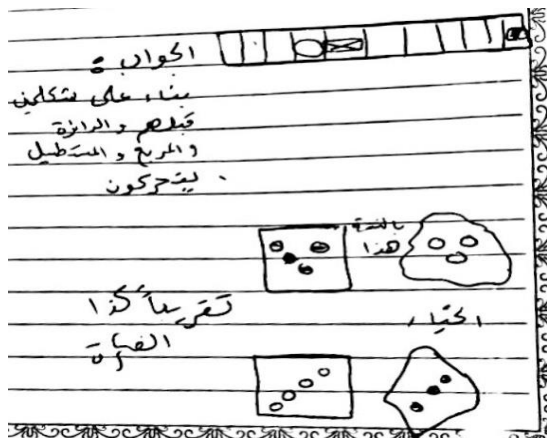 الجواب :
بناء على شكلين
قبلهم والدائرة
والمربع والمستطيل
يتحركون .
بالنسبة
هذا
تقريباً كذا
اختيار
الفكرة